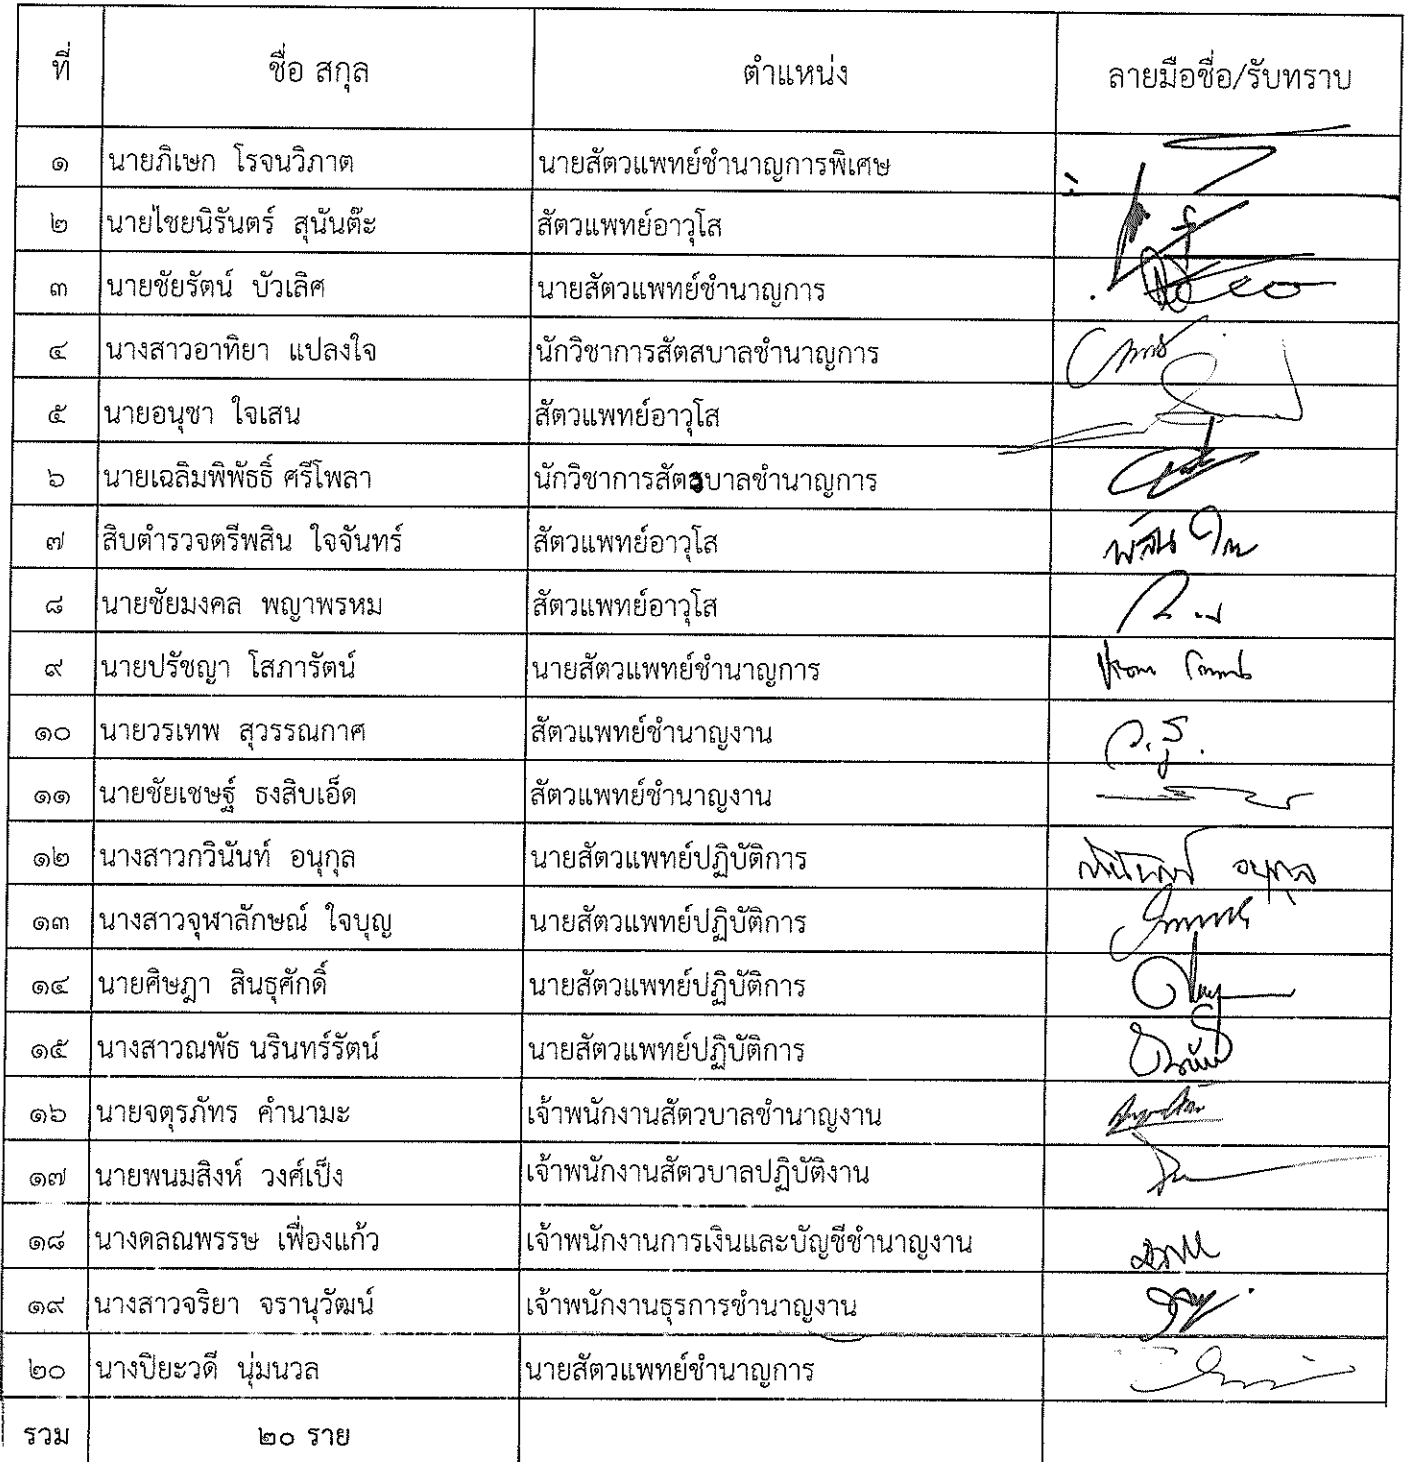 ที่ ชื่อ สกุล ตำแหน่ง ลายมือชื่อ/รับทราบ
๑ นายภิเษก โรจนวิภาต นายสัตวแพทย์ชำนาญการพิเศษ
๒ นายไชยนิรันตร์ สุนันต๊ะ สัตวแพทย์อาวุโส
๓ นายชัยรัตน์ บัวเลิศ นายสัตวแพทย์ชำนาญการ
๔ นางสาวอาทิยา แปลงใจ นักวิชาการสัตสบาลชำนาญการ
๕ นายอนุชา ใจเสน สัตวแพทย์อาวุโส
๖ นายเฉลิมพิพัธธิ์ ศรีโพลา นักวิชาการสัตวบาลชำนาญการ
๗ สิบตำรวจตรีพสิน ใจจันทร์ สัตวแพทย์อาวุโส
๘ นายชัยมงคล พญาพรหม สัตวแพทย์อาวุโส
๙ นายปรัชญา โสภารัตน์ นายสัตวแพทย์ชำนาญการ
๑๐ นายวรเทพ สุวรรณกาศ สัตวแพทย์ชำนาญงาน
๑๑ นายชัยเชษฐ์ ธงสิบเอ็ด สัตวแพทย์ชำนาญงาน
๑๒ นางสาวกวินันท์ อนุกุล นายสัตวแพทย์ปฏิบัติการ อนุกุล
๑๓ นางสาวจุฬาลักษณ์ ใจบุญ นายสัตวแพทย์ปฏิบัติการ
๑๔ นายศิษฎา สินธุศักดิ์ นายสัตวแพทย์ปฏิบัติการ
๑๕ นางสาวณพัธ นรินทร์รัตน์ นายสัตวแพทย์ปฏิบัติการ
๑๖ นายจตุรภัทร คำนามะ เจ้าพนักงานสัตวบาลชำนาญงาน
๑๗ นายพนมสิงห์ วงศ์เป็ง เจ้าพนักงานสัตวบาลปฏิบัติงาน
๑๘ นางดลณพรรษ เฟื่องแก้ว เจ้าพนักงานการเงินและบัญชีชำนาญงาน
๑๙ นางสาวจริยา จรานุวัฒน์ เจ้าพนักงานธุรการชำนาญงาน
๒๐ นางปิยะวดี นุ่มนวล นายสัตวแพทย์ชำนาญการ
รวม ๒๐ ราย